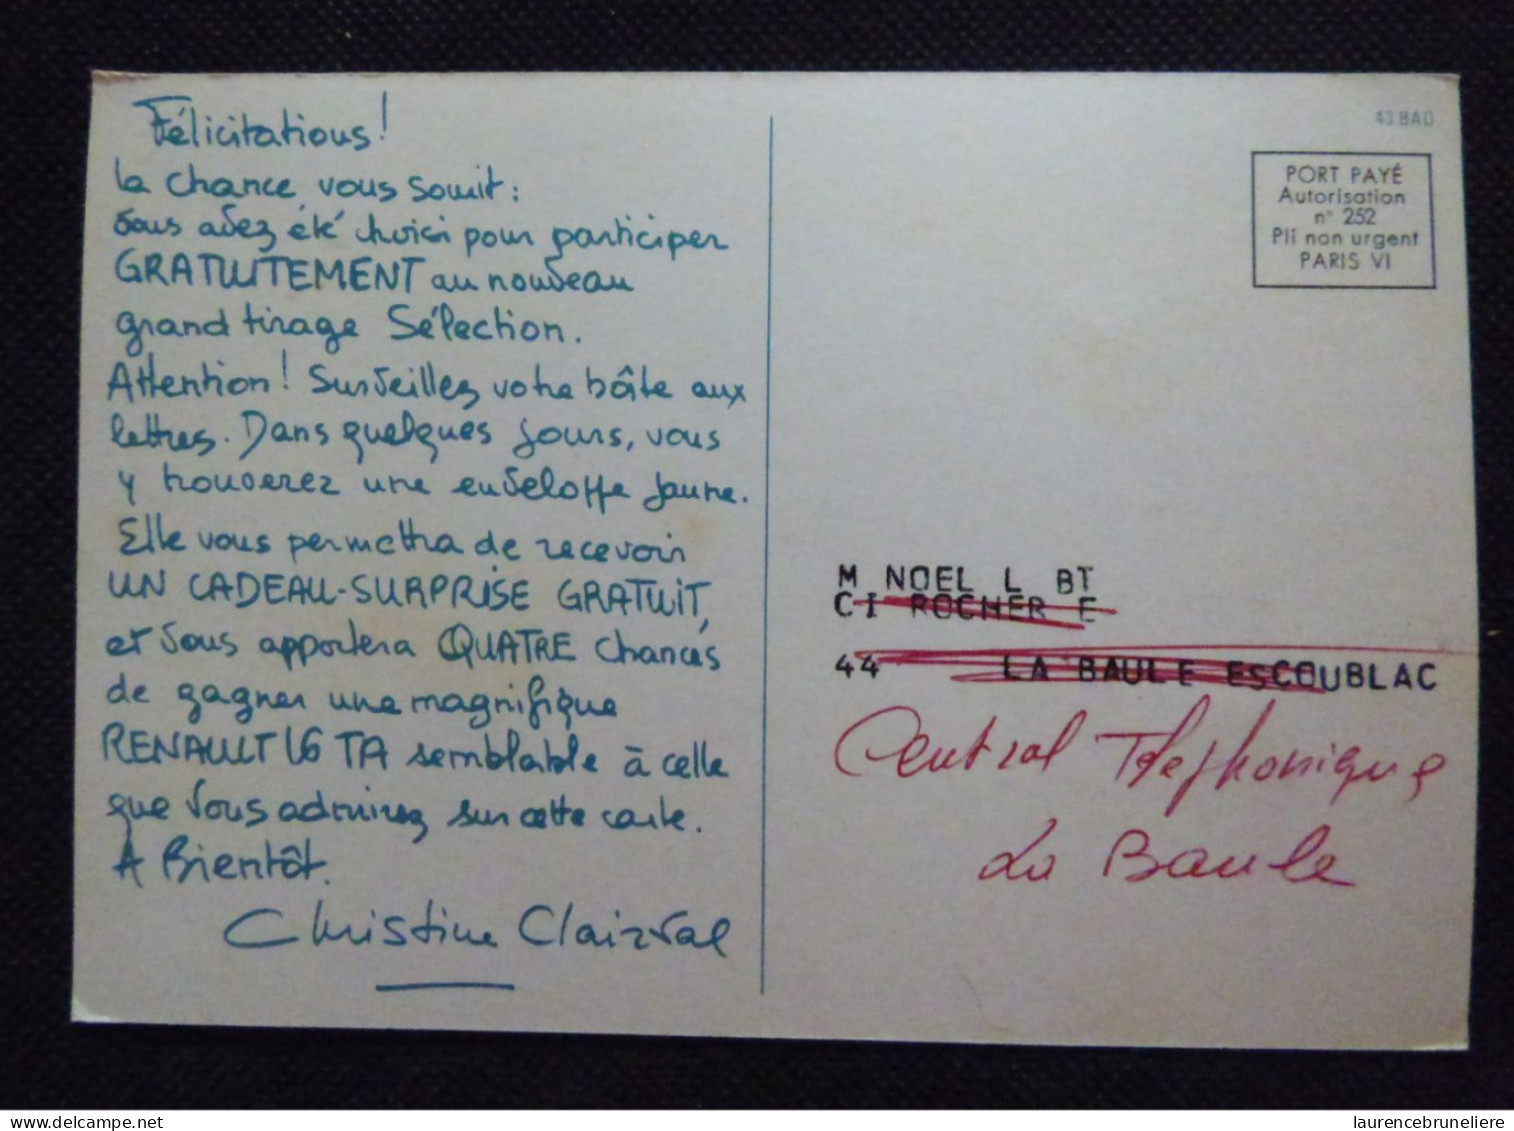 Félicitations!
la chance vous sourit :
Vous avez été choisi pour participer
GRATUITEMENT au nouveau
grand tirage Sélection.
Attention! Surveillez votre boîte aux
lettres. Dans quelques jours, vous
y trouverez une enveloppe jaune.
Elle vous permettra de recevoir
UN CADEAU-SURPRISE GRATUIT,
et vous apportera QUATRE chances
de gagner une magnifique
RENAULT 16 TA semblable à celle
que vous admirez sur cette carte.
A Bientôt.
Christine Clairval
43 BAD
PORT PAYÉ
Autorisation
n° 252
Pli non urgent
PARIS VI
M NOEL L BT
CI ROCHER E
44 LA BAULE ESCOUBLAC
Central Telephonique
La Baule
delcampe.net
laurencebruneliere